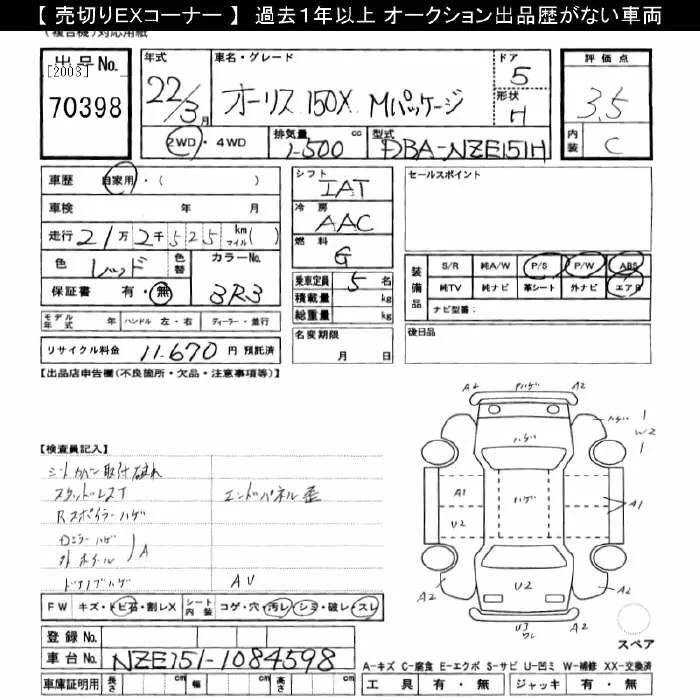 【 売切りEXコーナー 】 過去１年以上 オークション出品歴がない車両
(複合機)対応用紙
出品No.
[2003]
70398
年式
22/3月
車名・グレード
オーリス 150X Mパッケージ
ドア
5
形状
H
評価点
3.5
内装
C
2WD・4WD
排気量 cc
1500
型式
DBA-NZE151H
車歴 自家用・( )
車検 年 月
走行 21万2千525 km マイル( )
色 レッド
色替
カラーNo.
3R3
保証書 有・無
モデル年式 年 ハンドル 左・右 ディーラー・並行
リサイクル料金 11,670 円 預託済
シフト
IAT
冷房
AAC
燃料
G
乗車定員 5 名
積載量 kg
総重量 kg
名変期限
月 日
セールスポイント
装備品
S/R 純A/W P/S P/W ABS
純TV 純ナビ 革シート 外ナビ エアB
ナビ型番:
後日品
【出品店申告欄(不良箇所・欠品・注意事項等)】
【検査員記入】
シートカバー取付 破れ
スタッドレスT
エンドパネル歪
Rスポイラーハゲ
Dミラーハゲ
外 ホイール
A
ドアノブハゲ
AU
FW キズ・トビ石・割レX
シート内装 コゲ・穴・汚レ・シミ・破レ・スレ
登録No.
車台No. NZE151-1084598
車庫証明用 長さ cm 幅 cm 高さ cm
A2
ハゲ
A2
ハゲ
W2
ハゲ
A1
ハゲ
A1
U2
A2
U2
A2
ワレ
スペア
A-キズ C-腐食 E-エクボ S-サビ U-凹ミ W-補修 XX-交換済
工具 有・無 ジャッキ 有・無